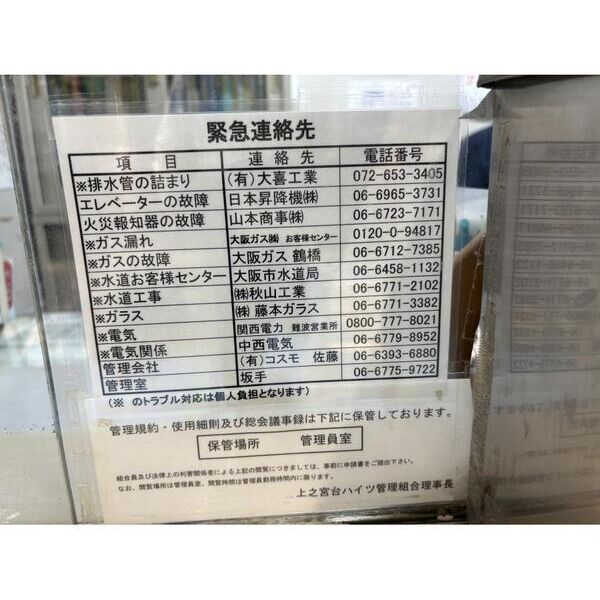 緊急連絡先
項 目 連 絡 先 電話番号
※排水管の詰まり (有)大喜工業 072-653-3405
エレベーターの故障 日本昇降機㈱ 06-6965-3731
火災報知器の故障 山本商事㈱ 06-6723-7171
※ガス漏れ 大阪ガス㈱ お客様センター 0120-0-94817
※ガスの故障 大阪ガス 鶴橋 06-6712-7385
※水道お客様センター 大阪市水道局 06-6458-1132
※水道工事 ㈱秋山工業 06-6771-2102
※ガラス ㈱藤本ガラス 06-6771-3382
※電気 関西電力 難波営業所 0800-777-8021
※電気関係 中西電気 06-6779-8952
管理会社 (有)コスモ 佐藤 06-6393-6880
管理室 坂手 06-6775-9722
(※ のトラブル対応は個人負担となります)
管理規約・使用細則及び総会議事録は下記に保管しております。
保管場所 管理員室
組合員及び法律上の利害関係者による上記の閲覧につきましては、事前に申請書をご提出下さい。
なお、閲覧場所は管理員室、閲覧時間は管理員勤務時間内に限ります。
上之宮台ハイツ管理組合理事長